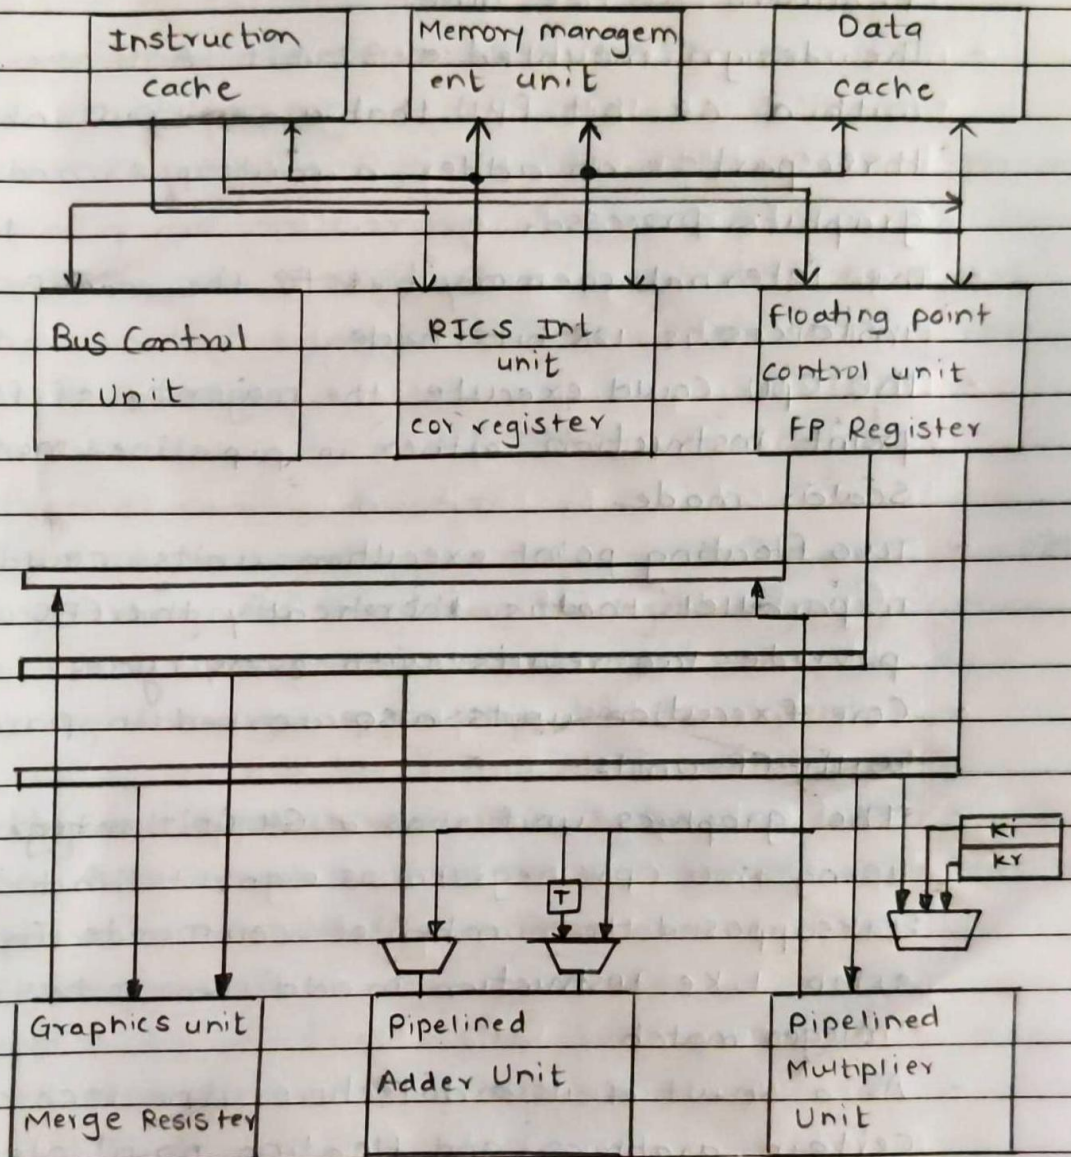 Instruction
cache
Memory managem
ent unit
Data
cache
Bus Control
Unit
RICS Int
unit
cor register
floating point
control unit
FP Register
Ki
Kr
T
Graphics unit
Merge Resister
Pipelined
Adder Unit
Pipelined
Multiplier
Unit